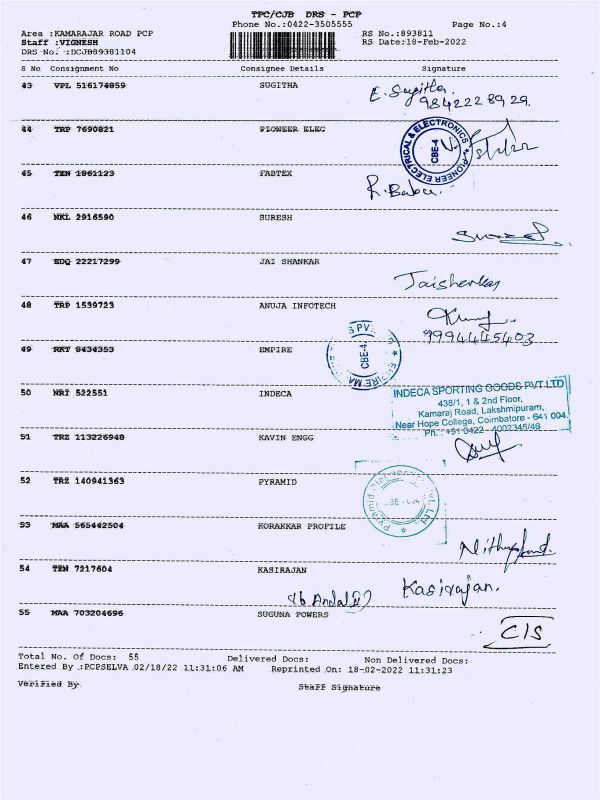 TPC/CJB DRS - PCP
Phone No.:0422-3505555 Page No.:4
Area :KAMARAJAR ROAD PCP RS No.:893811
Staff :VIGNESH RS Date:18-Feb-2022
DRS No. :DCJB89381104
S No Consignment No Consignee Details Signature
43 VPL 516174859 SUGITHA
E. Sugitha
9842228929.
44 TRP 7690821 PIONEER ELEC
PIONEER ELECTRICAL & ELECTRONICS
CBE-4
45 TEN 1861123 FABTEX
R. Babu.
46 NKL 2916590 SURESH
47 EDQ 22217299 JAI SHANKAR
Jaishankar
48 TRP 1539723 ANUJA INFOTECH
9994445403
49 RKT 8434353 EMPIRE
CBE-4
50 NRI 522551 INDECA
INDECA SPORTING GOODS PVT LTD
438/1, 1 & 2nd Floor,
Kamaraj Road, Lakshmipuram,
Near Hope College, Coimbatore - 641 004.
Ph. : +91 0422 - 4002345/46
51 TRZ 113226948 KAVIN ENGG
52 TRZ 140941363 PYRAMID
53 MAA 565442504 KORAKKAR PROFILE
54 TEN 7217604 KASIRAJAN
Kasirajan.
55 MAA 703204696 SUGUNA POWERS
CIS
Total No. of Docs: 55 Delivered Docs: Non Delivered Docs:
Entered By :PCPSELVA 02/18/22 11:31:06 AM Reprinted On: 18-02-2022 11:31:23
Verified By Staff Signature